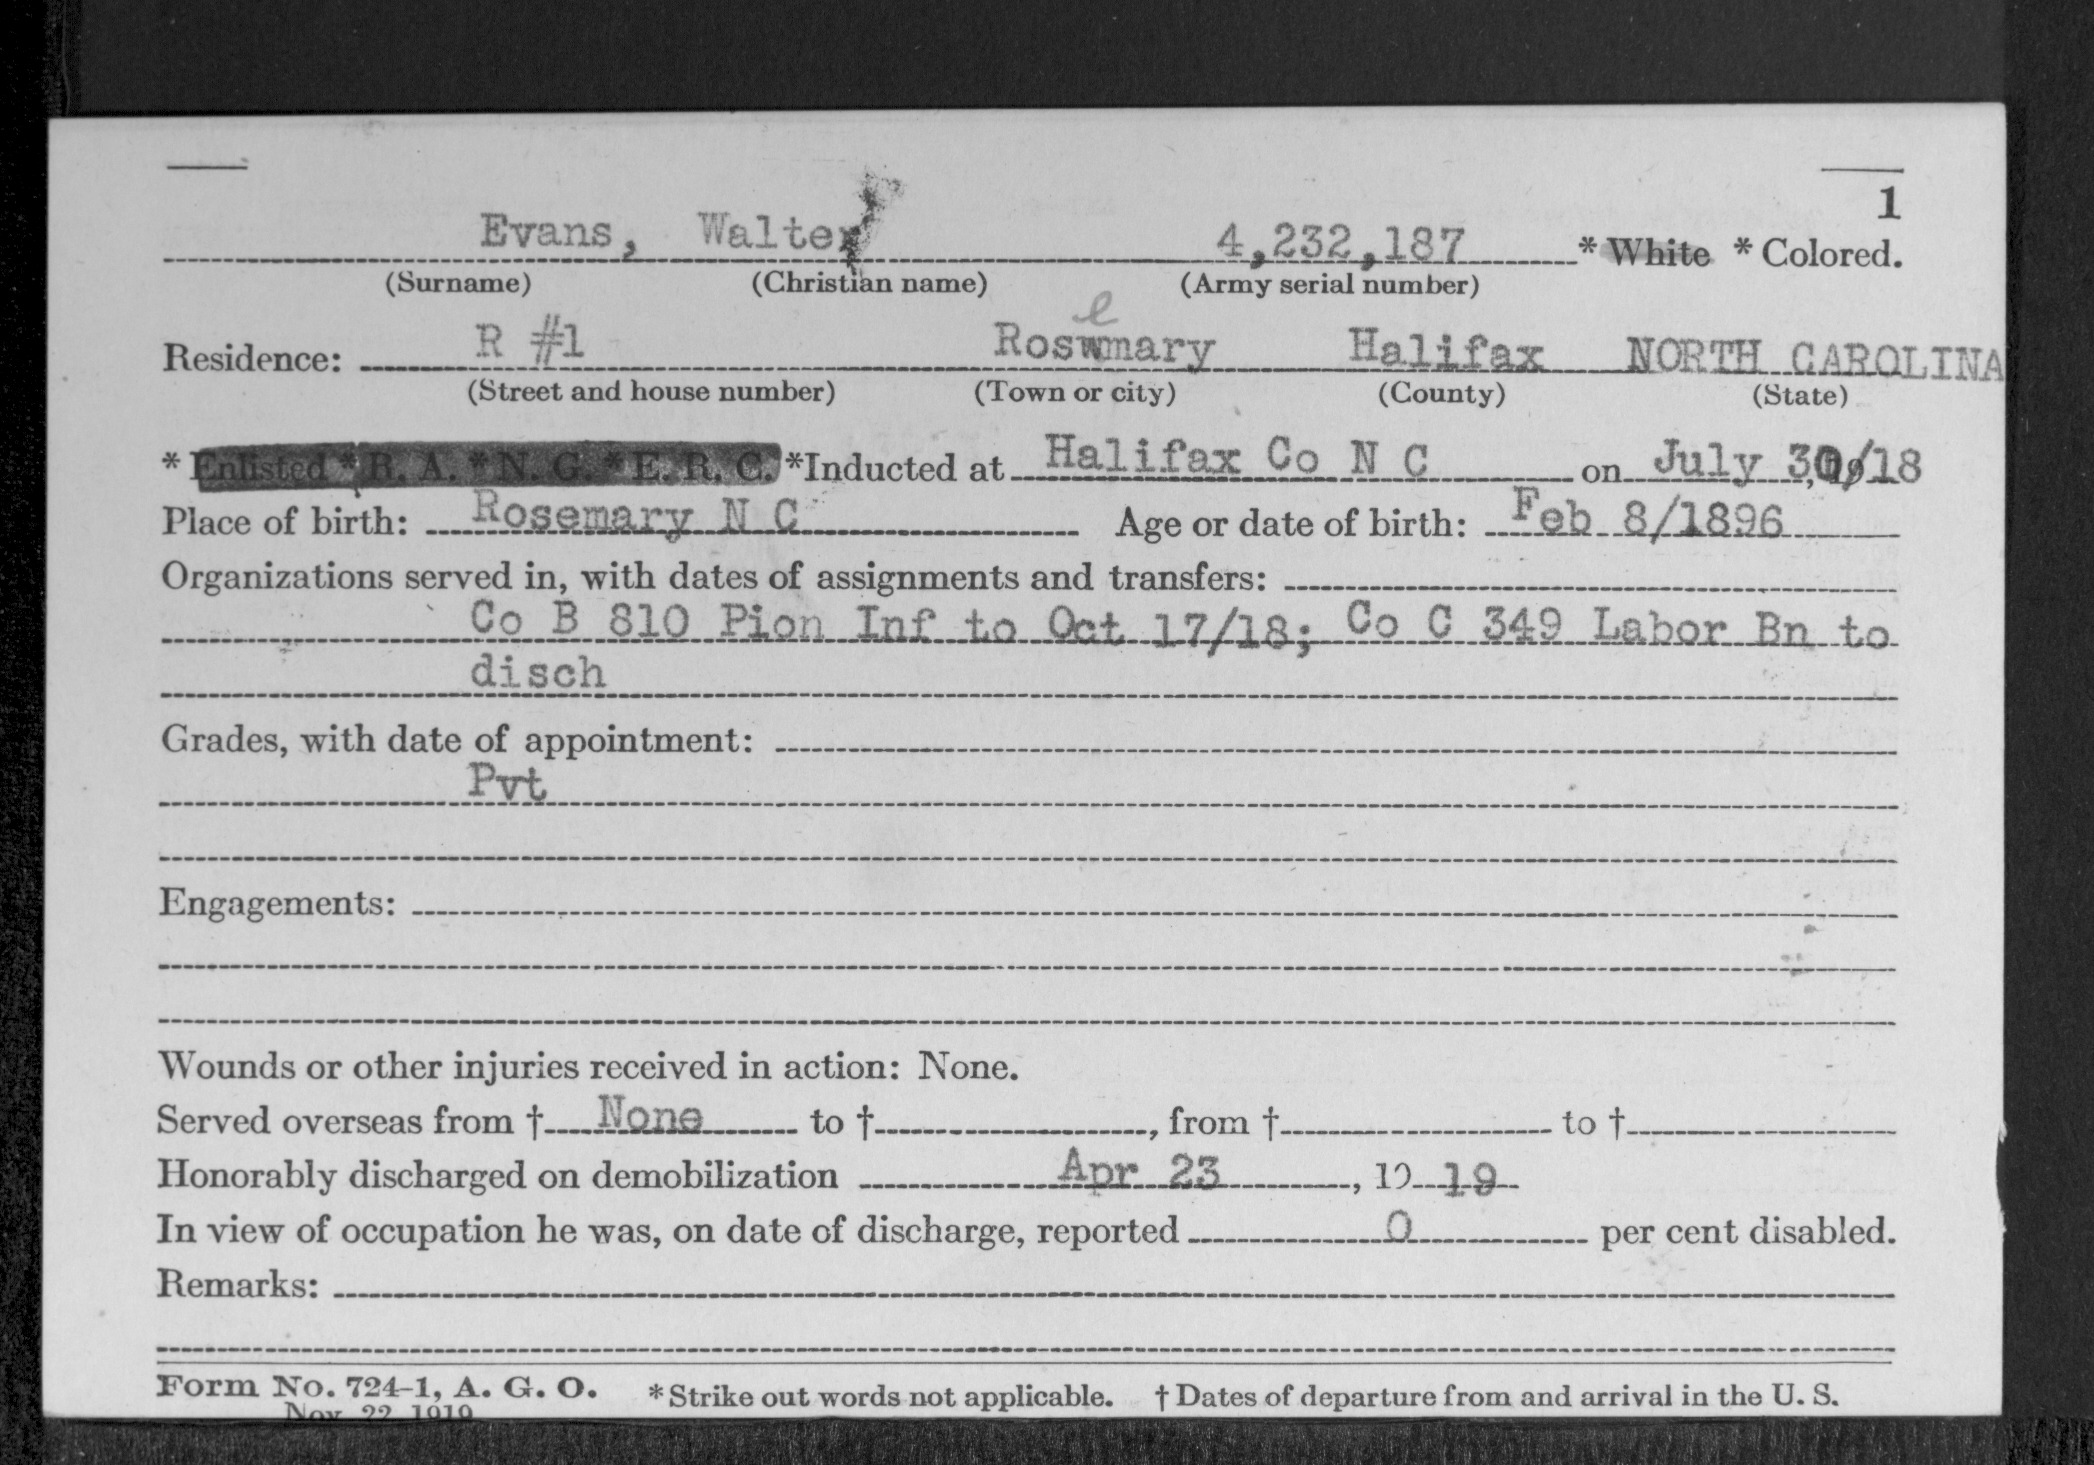 1
Evans, Walter 4,232,187 * White * Colored.
(Surname) (Christian name) (Army serial number)
e
Residence: R #1 Roswmary Halifax NORTH CAROLINA
(Street and house number) (Town or city) (County) (State)
* Enlisted * R. A. * N. G. * E. R. C. *Inducted at Halifax Co N C on July 30/18
Place of birth: Rosemary N C Age or date of birth: Feb 8/1896
Organizations served in, with dates of assignments and transfers:
Co B 810 Pion Inf to Oct 17/18; Co C 349 Labor Bn to
disch
Grades, with date of appointment:
Pvt
Engagements:
Wounds or other injuries received in action: None.
Served overseas from † None to †, from † to †
Honorably discharged on demobilization Apr 23, 19 19
In view of occupation he was, on date of discharge, reported 0 per cent disabled.
Remarks:
Form No. 724-1, A. G. O. * Strike out words not applicable. † Dates of departure from and arrival in the U. S.
Nov 22 1919